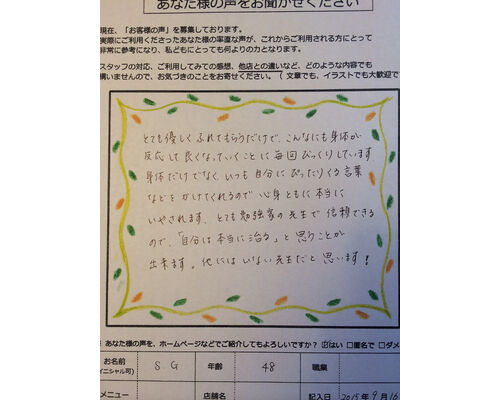 あなた様の声をお聞かせください
現在、「お客様の声」を募集しております。
実際にご利用くださったあなた様の率直な声が、これからご利用される方にとって
非常に参考になり、私どもにとっても何よりの力となります。
スタッフの対応、ご利用してみての感想、他店との違いなど、どのような内容でも
構いませんので、お気づきのことをお寄せください。（文章でも、イラストでも大歓迎で
とても優しくふれてもらうだけで、こんなにも身体が
反応して良くなっていくことに毎回びっくりしています
身体だけでなく、いつも自分にぴったりくる言葉
などをかけてくれるので心身ともに本当に
いやされます。とても勉強家の先生で信頼できる
ので、「自分は本当に治る」と思うことが
出来ます。他にはいない先生だと思います！
※ あなた様の声を、ホームページなどでご紹介してもよろしいですか？ ☑はい □匿名で □ダメ
お名前 S.G 年齢 48 職業
イニシャル可)
メニュー 店舗名 記入日 2015年9月16